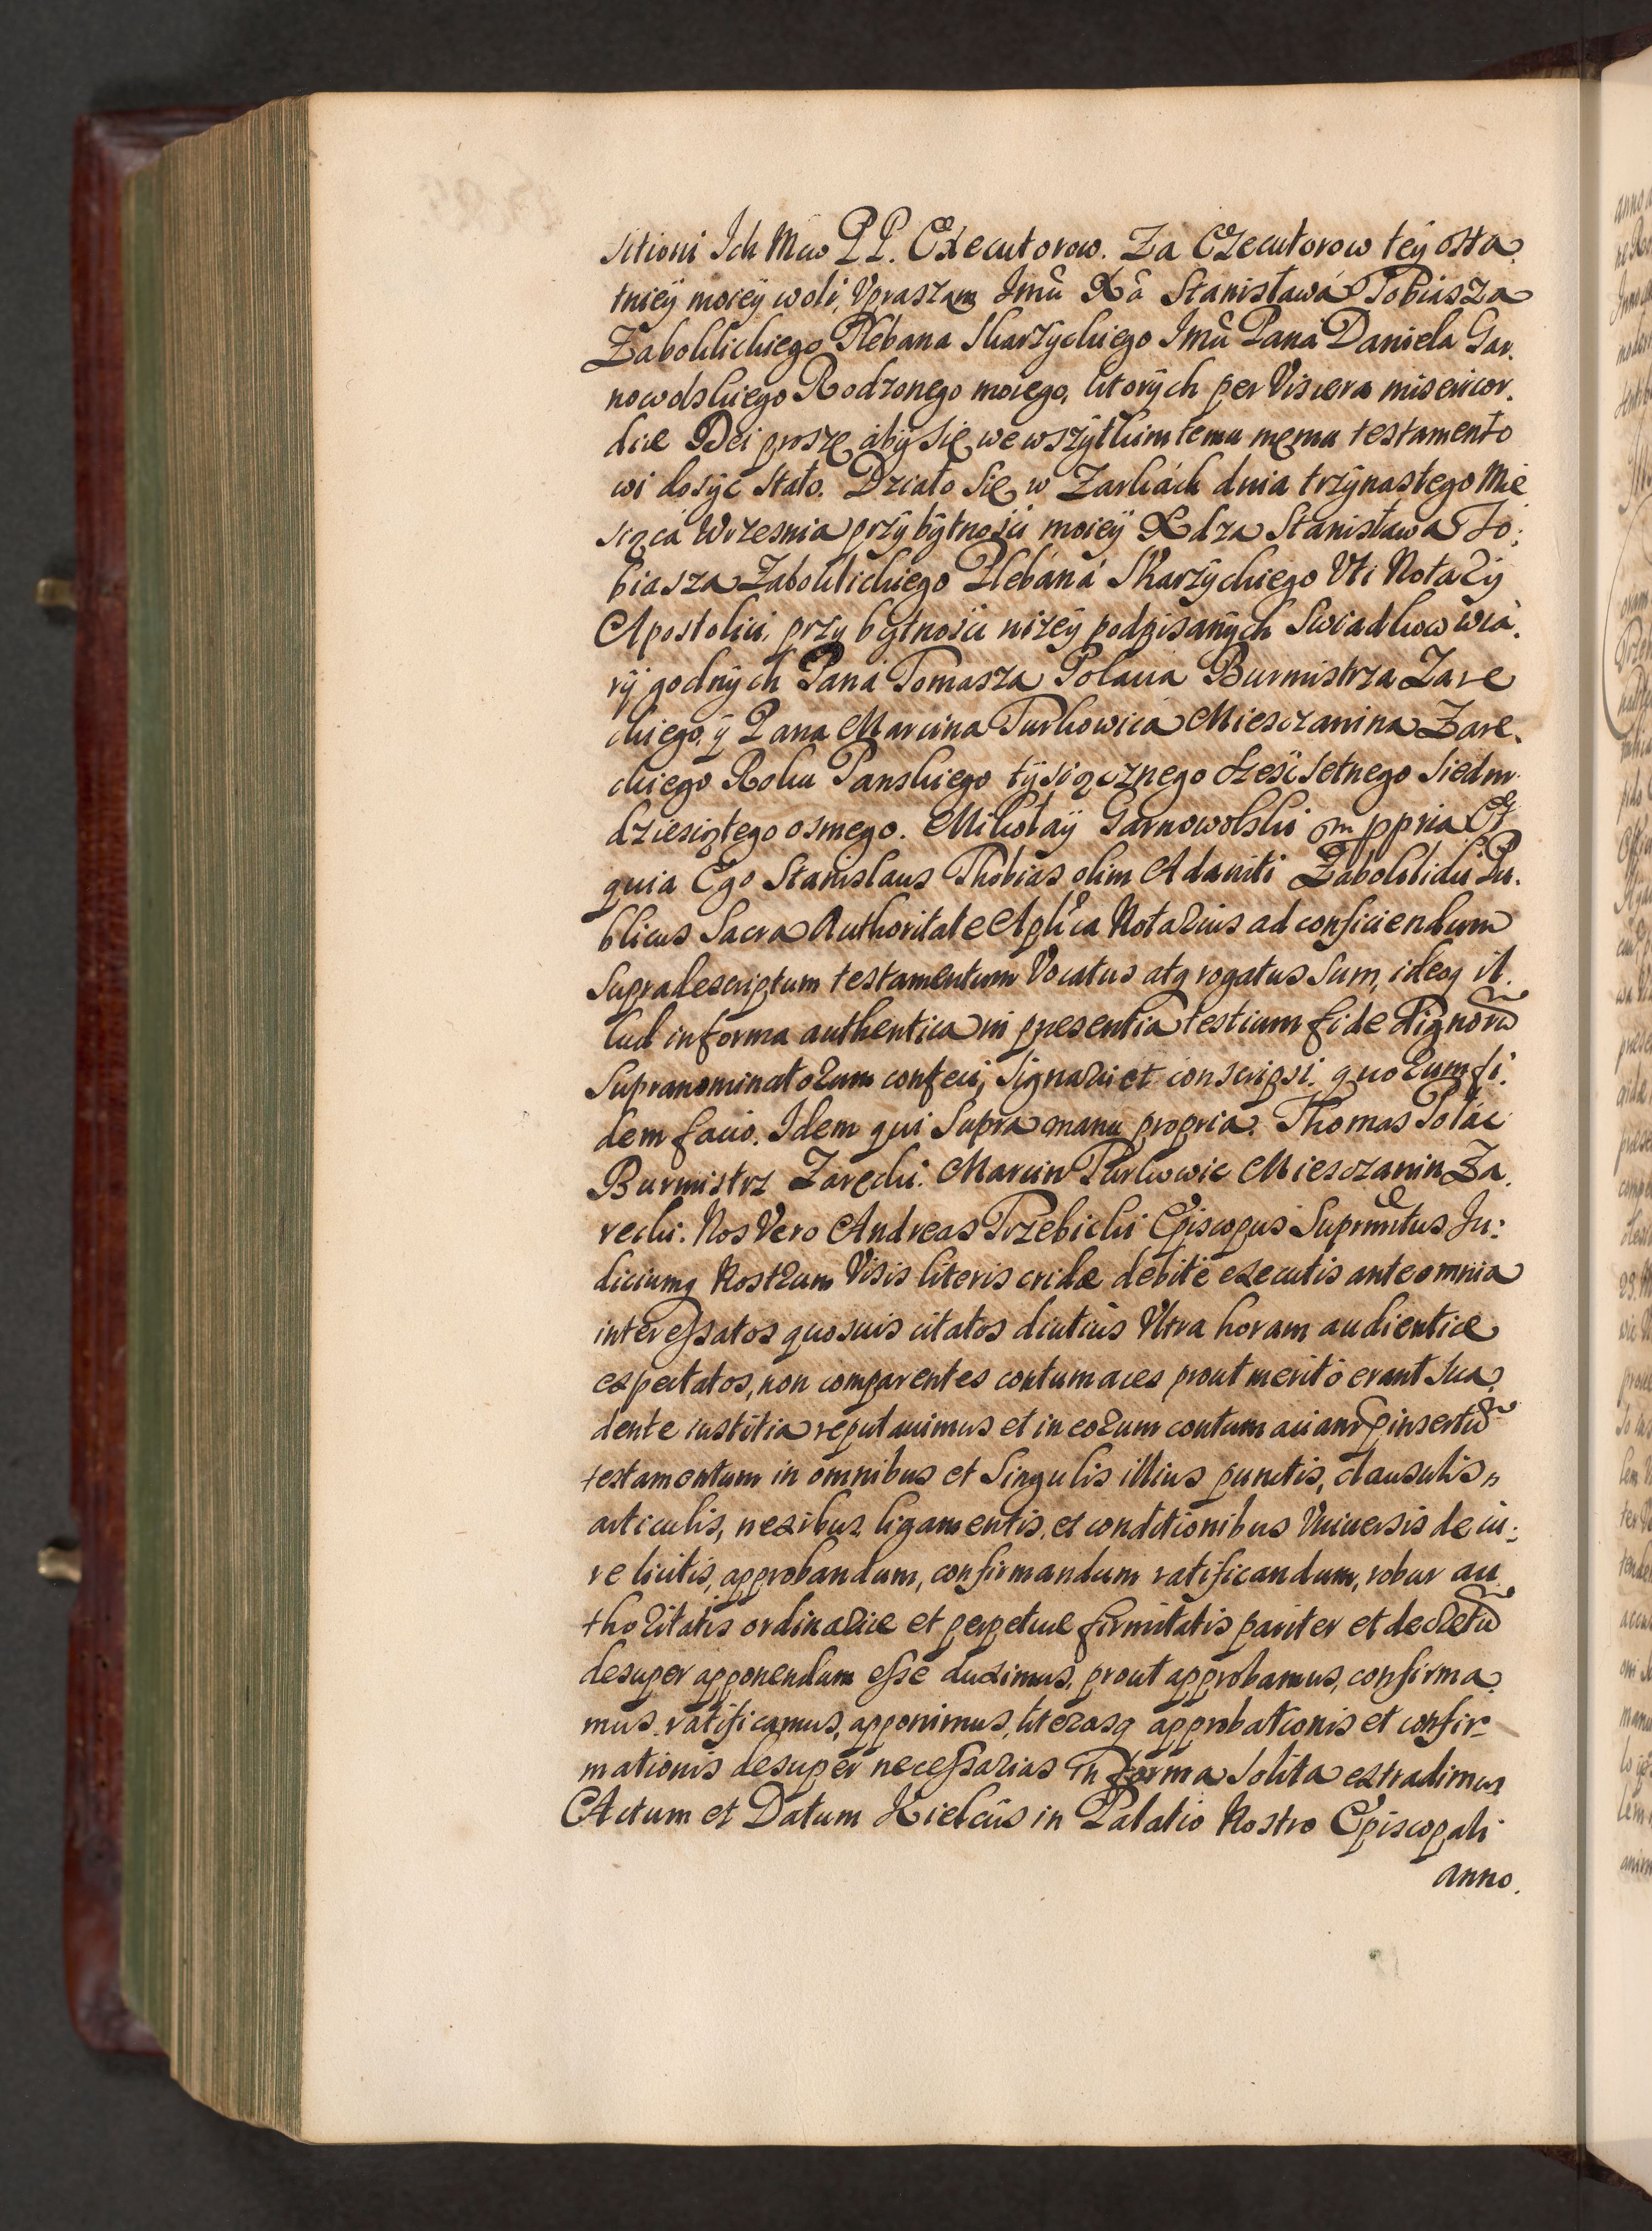 sitioni Ich Mcw PP. Executorow. Za Execuforow tey osta,
tniey moiey woli, Vpraszam Jmũ Xã Stanisława Tobiasza
Zabokllickiego Plebana Skarżyckiego Jmũ Pana Daniela Gar,
nowolskiego Rodzonego moiego, ktorych per Viscera misericor,
diae Dei proszę aby się we wszytkim temu memu testamento
wi dosyć stało. Działo się w Zarkach dnia trzynastego Mie
siąca Wrzesnia przy bytnosci moiey Xdza Stanisława To:
biasza Zaboklickiego Plebana Skarzyckiego Vti Notarij
Apostolici, przy bytnosci niżey podpisanych Swiadkow wia,
ry godnych Pana Tomasza Polaca Burmistrza Zare
ckiego, y Pana Marcina Turkowica Miesczanina Zare,
ckiego Roku Panskiego tysiącznego szesćsetnego Siedm
dziesiątego osmego. Mikołay Garnowolski m ppria Et
quia Ego Stanislaus Thobias olim Adamiti Zaboklicki Pu,
blicus Sacra Authoritate Aplica Notarius ad conficiendum
supradescriptum testamentum Vocatus atq rogatus sum, ideoq il,
lud in forma authentica in presentia testium fide dignorũ
supranominatorum confeci, signavi et conscripsi. quorum fi,
dem facio. Idem qui supra manu propria. Thomas Polac
Burmistrz Zarecki. Marcin Turkowic Miesczanin Za,
recki. Nos Vero Andreas Trzebicki Episcopus Suprmtus Ju:
diciumq Nostrum Visis literis cridae debitè executis ante omnia
interessatos quosuis citatos diutius Vltra horam audientiae
expectatos, non comparentes contumaces prout meritò erant sua,
dente iustitia reputauimus et in eorum contumaciam pinsertũ
testamentum in omnibus et singulis illius punctis, clausulis,
articulis, nexibus, ligamentis, et conditionibus Vniuersis de iu:
re licitis, approbandum, confirmandum ratificandum, robur au
thoritatis ordinariae et perpetuae firmitatis pariter et decretũ
desuper apponendum esse duximus, prout approbamus, confirma,
mus, ratificamus, apponimus, literasq approbationis et confir-
mationis desuper necessarias in forma solita extradimus
Actum et Datum Kielcijs in Palatio Nostro Episcopali
anno.